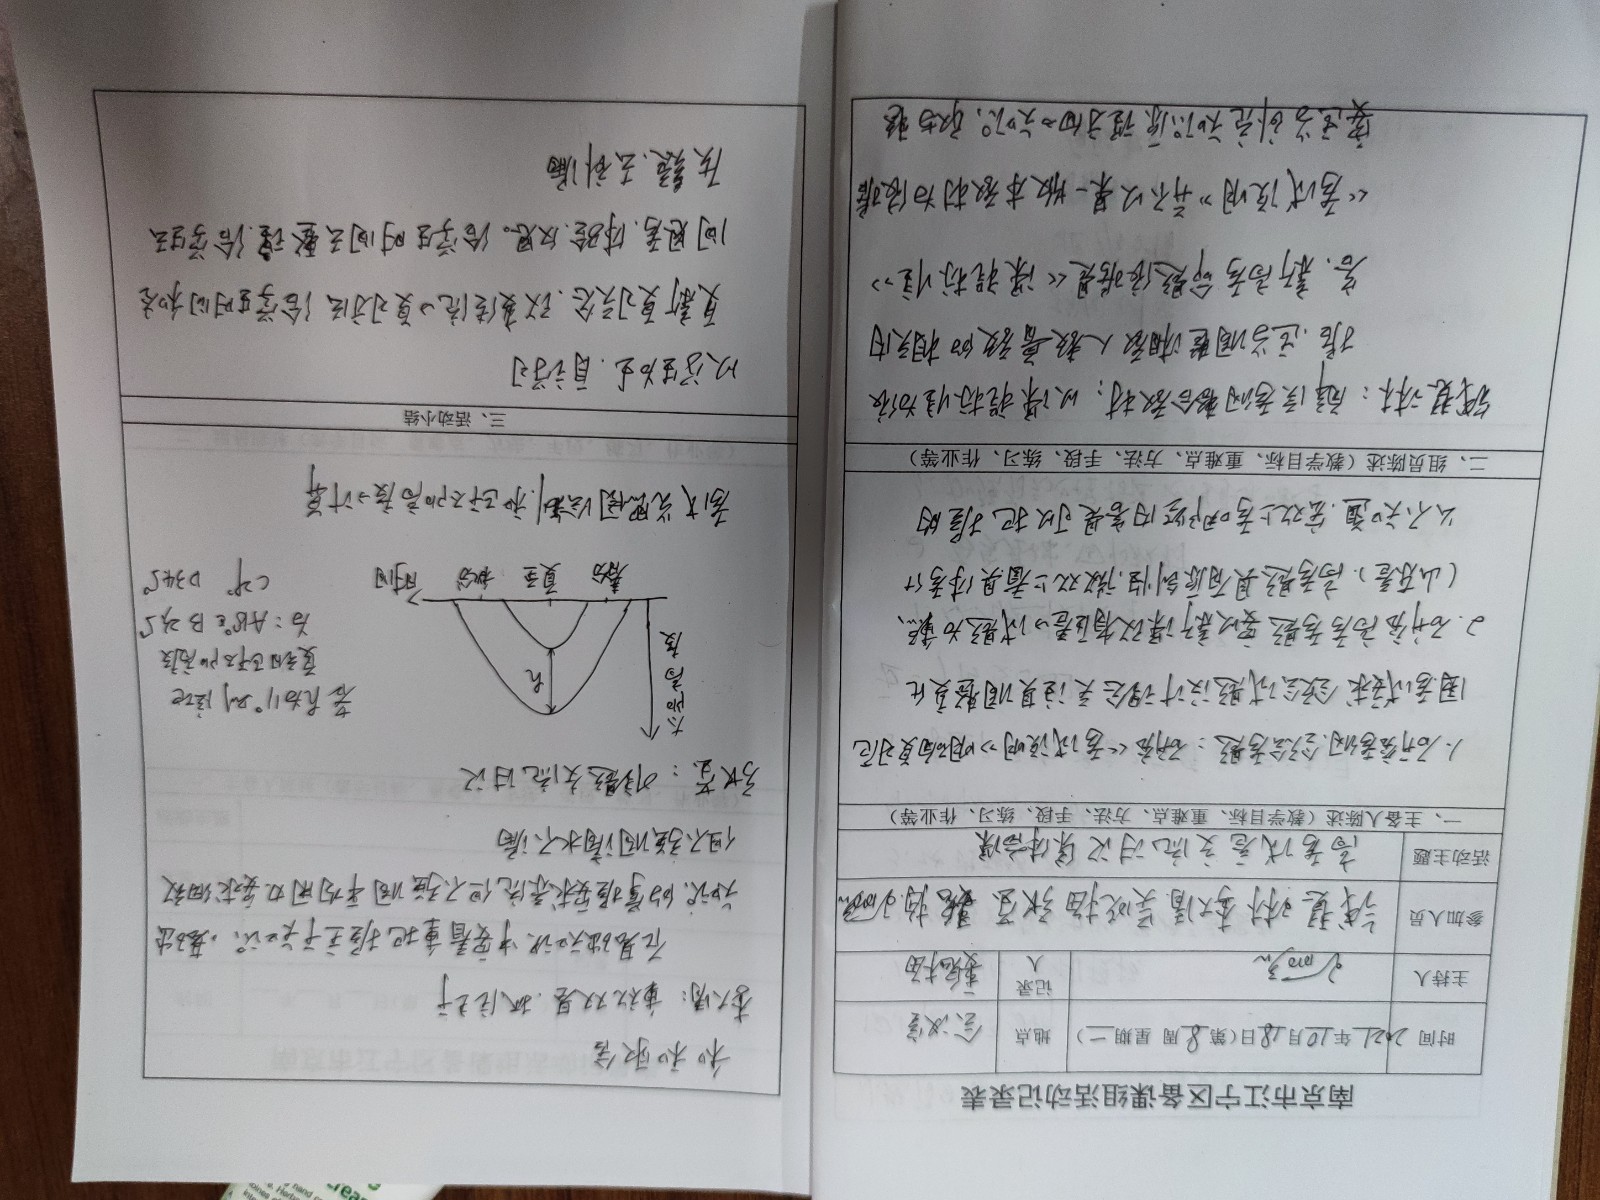 南京市江宁区备课组活动记录表
时间 2021年10月18日(第8周 星期一) 地点 会议室
主持人 王丽亮 记录人 魏梅
参加人员 钱慧琳 李大清 吴晓梅 张莹 魏梅 王丽亮
活动主题 高考试卷交流讨论 集体备课
一、主备人陈述（教学目标、重难点、方法、手段、练习、作业等）
1. 研究考纲、领会考题：研究《考试说明》明确复习范
围、考试要求 领会试题设计理念 关注其调整变化
2. 研究高考考题 要以新课改省区卷的试题为重点、
(山东卷). 高考题具有原创性, 微观上看具体考什
么不知道, 宏观上考哪些内容是可以把握的
二、组员陈述（教学目标、重难点、方法、手段、练习、作业等）
钱慧琳：解读考纲整合教材：以课程标准为依
据、适当调整湘教人教鲁教的相关内
容、新高考命题依据是《课程标准》
《考试说明》并不以某一版本教材为依据
要适当补充知识原理方面的知识、取与整
和和取舍
李大清：重视双基、抓住主干
在基础知识中要着重把握主干知识、基础
知识的掌握要求系统但不强调平均用力 要求细致
但不强调滴水不漏
张莹：难题交流讨论
太阳高度
h
春分 夏至 秋分 时间
若h为11°则该地
夏至日正午太阳高度
为：A18° B 23.5°
C 29° D 34.5°
考试光照图绘制、和正午太阳高度的计算
三、活动小结
以学生为主、自主学习
更新复习观念、改变传统的复习方法 给学生时间和空
间思考、体验、反思。给学生时间去整理、给学生去
质疑、去补漏